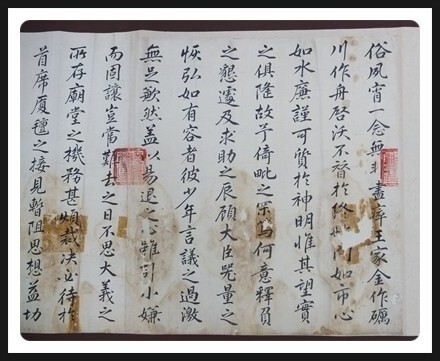 俗夙宵一念無非盡瘁王家金作礪
川作舟啓沃不替於終始門如市心
如水廉謹可質於神明惟其望實
之俱隆故予倚毗之深篤何意釋負
之懇遽及求助之辰顧大臣量之
恢弘如有容者彼少年言議之過激
無足歉然盖以易退之心雖引小嫌
而固讓豈當難去之日不思大義之
所存廟堂之機務甚煩裁決必待於
首席廈氈之接見暫阻思想益切